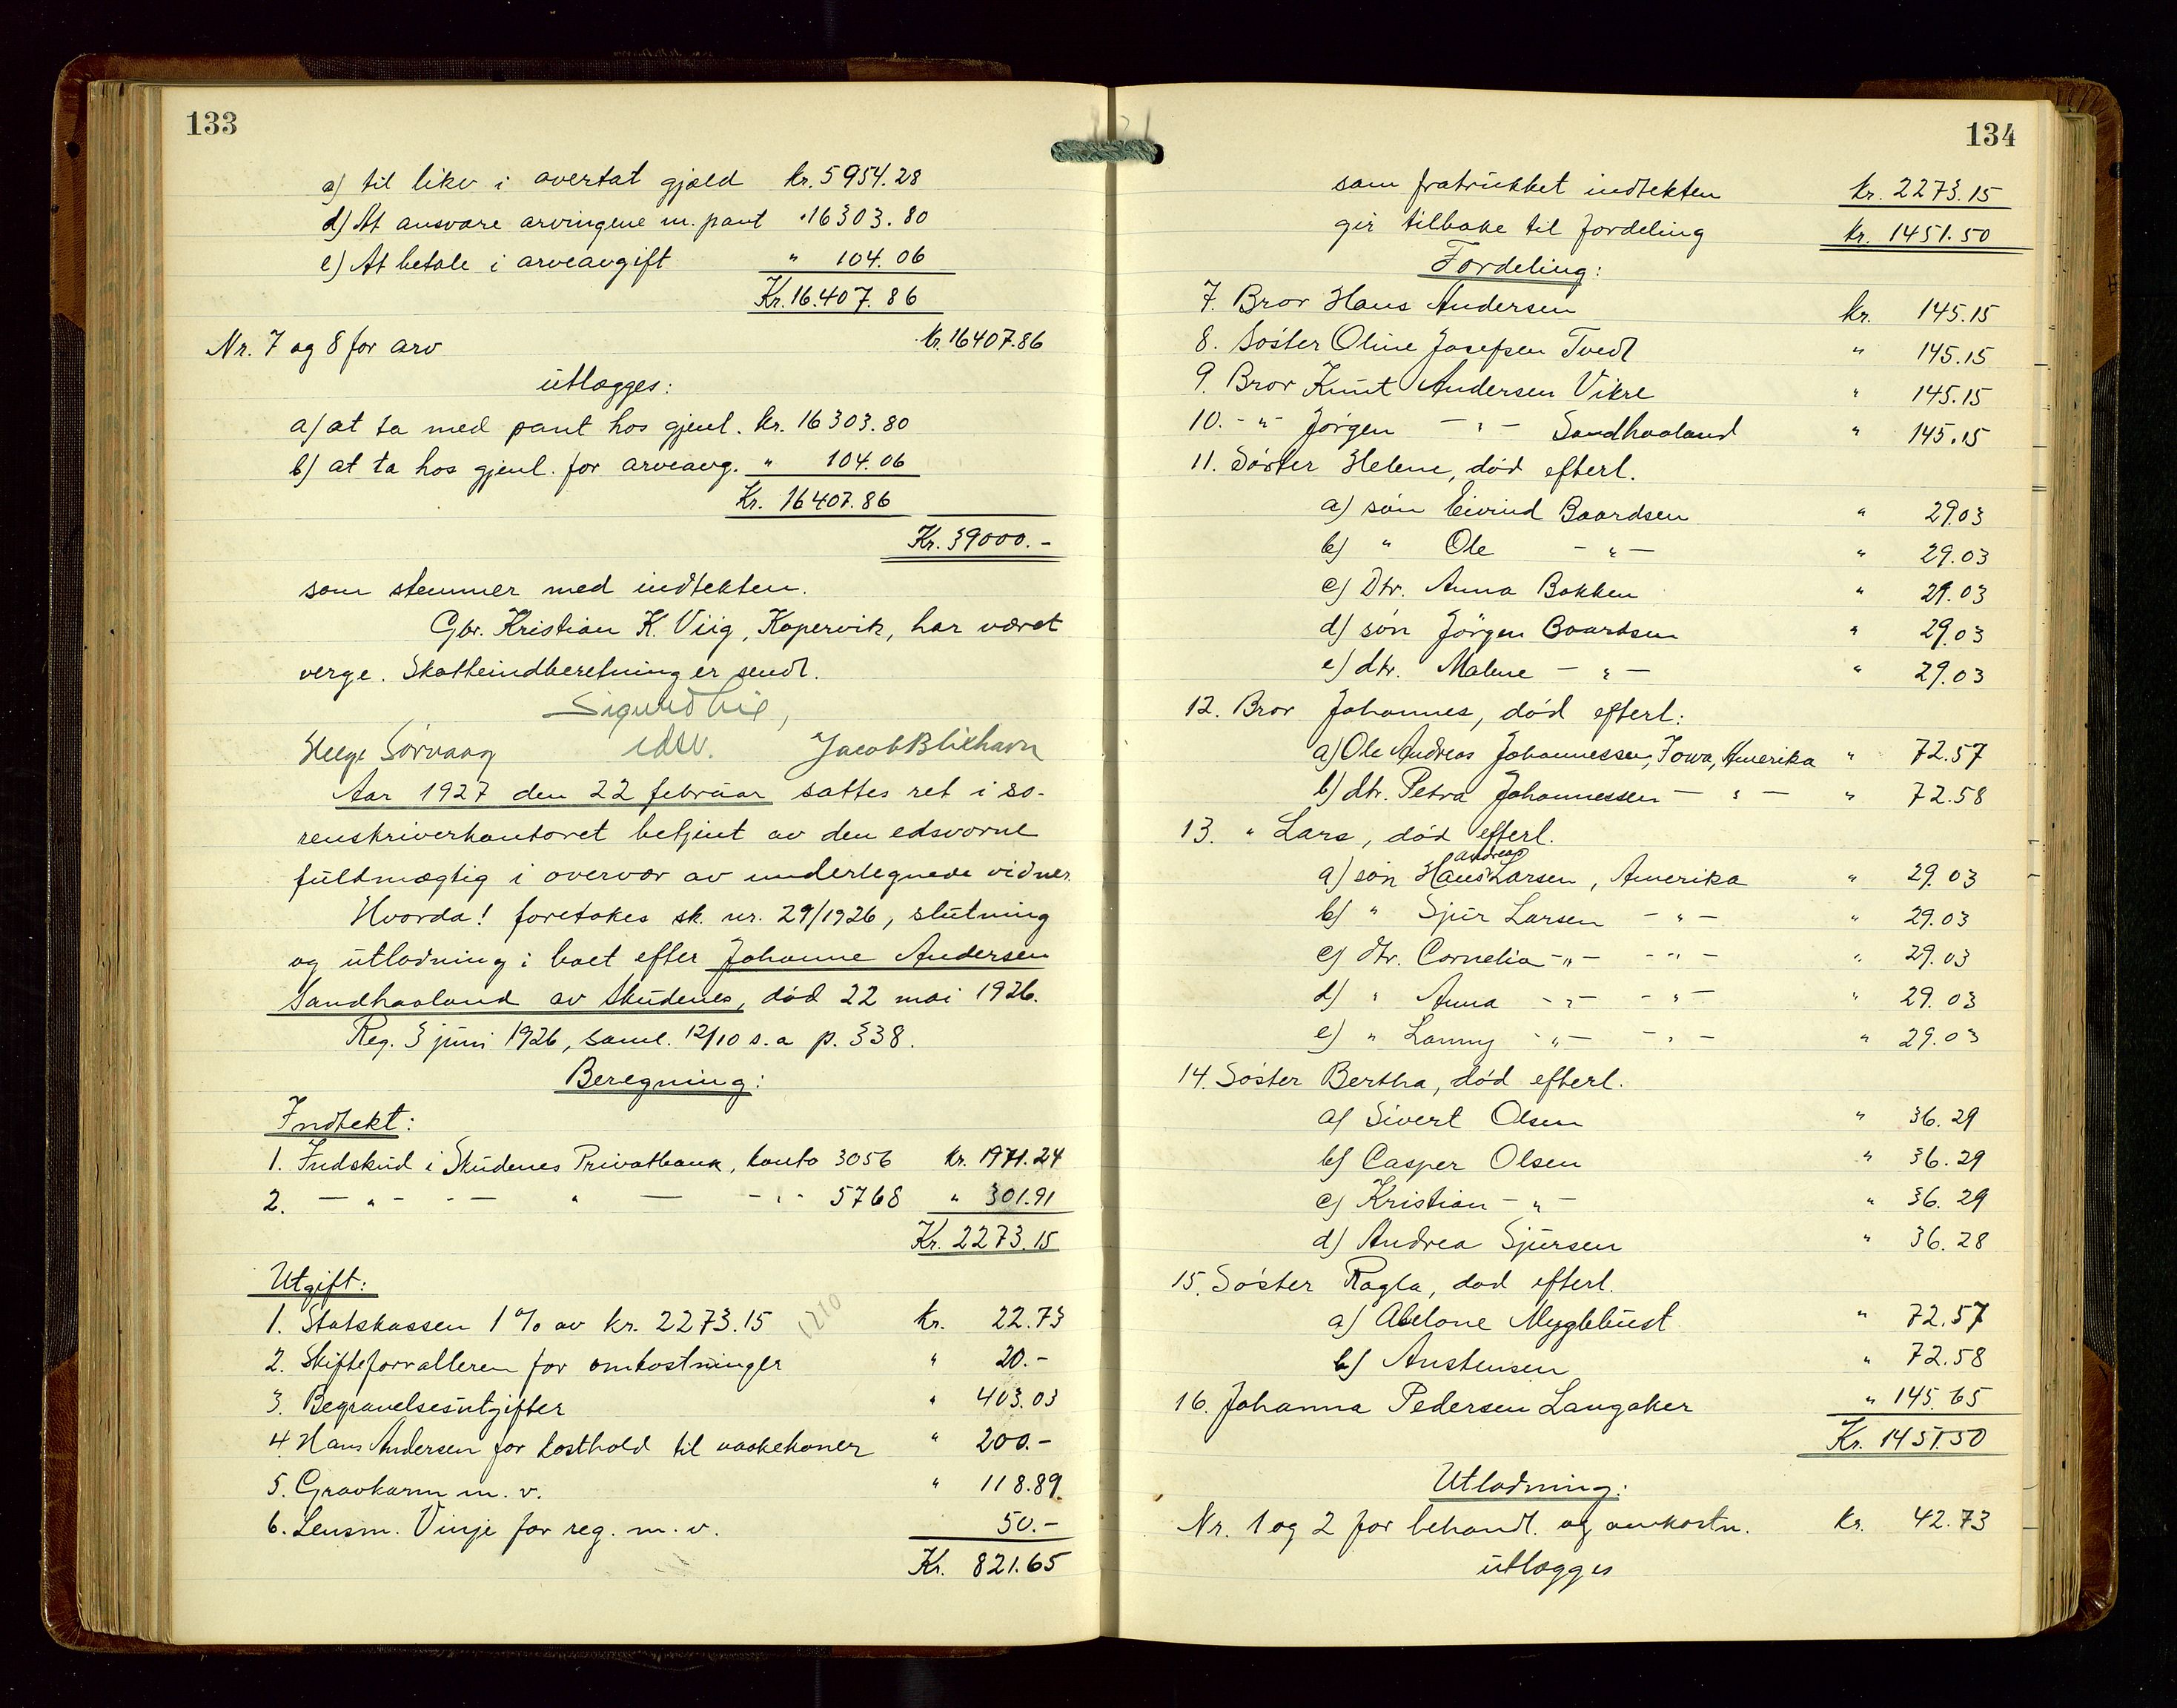 133
a) til likv i overtat gjæld kr. 5954.28
d) At ansvare arvingene m. pant " 16303.80
e) At betale i arveavgift " 104.06
Kr. 16.407.86
Nr. 7 og 8 for arv kr. 16407.86
utlægges:
a) at ta med pant hos gjenl. kr. 16303.80
b) at ta hos gjenl. for arveavg. " 104.06
Kr. 16407.86
Kr. 39000.-
som stemmer med indtekten.
Gbr. Kristian K. Viig, Kopervik, har været
verge. Skatteindberetning er sendt.
Sigurd
Helge Sørvaag edsv. Jacob Blikhavn
Aar 1927 den 22 februar sattes ret i so-
renskriverkontoret betjent av den edsvorne
fuldmægtig i overvær av undertegnede vidner.
Hvorda! foretokes sk. nr. 29/1926, slutning
og utlodning i boet efter Johanne Andersen
Sandhaaland av Skudenes, død 22 mai 1926.
Reg. 3 juni 1926, saml. 12/10 s.a p. 338.
Beregning:
Indtekt:
1. Indskud i Skudenes Privatbank, konto 3056 kr. 1971.24
2. - " - - - " - - " - 5768 " 301.91
Kr. 2273.15
Utgift:
1. Statskassen 1% av kr. 2273.15 1210 kr. 22.73
2. Skifteforvalteren for omkostninger " 20.-
3. Begravelsesutgifter " 403.03
4. Hans Andersen for kosthold til vaskekoner " 200.-
5. Gravkarm m. v. " 118.89.
6. Lensm. Vinje for reg. m. v. 50.-
Kr. 821.65
134
som fratrukket indtekten kr. 2273.15
gir tilbake til fordeling kr. 1451.50
Fordeling:
7. Bror Hans Andersen kr. 145.15
8. Søster Oline Josefsen Tvedt " 145.15
9. Bror Knut Andersen Vikre " 145.15
10. - " - Jørgen - " - Sandhaaland " 145.15
11. Søster Helene, død efterl.
a) søn Eivind Baardsen " 29.03
b) " Ole - " - " 29.03
c) Dtr. Anna Bakken " 29.03
d) søn Jørgen Baardsen " 29.03
e) dtr. Malene - " - " 29.03
12. Bror Johannes, død efterl:
a) Ole Andreas Johannessen, Iowa, Amerika " 72.57
b) dtr. Petra Johannessen - " - " 72.58
13. " Lars, død efterl.
a) søn Hans Andreas Larsen, Amerika " 29.03
b) " Sjur Larsen - " - " 29.03
c) dtr. Cornelia - " - - " - " 29.03
d) " Anna - " - - " - " 29.03
e) " Lanny - " - - " - " 29.03
14. Søster Bertha, død efterl.
a) Sivert Olsen " 36.29
b) Casper Olsen " 36.29
c) Kristian - " - " 36.29
d) Andrea Sjursen " 36.28
15. Søster Ragla, død efterl.
a) Abelone Myglebust " 72.57
b) Austensen " 72.58
16. Johanna Pedersen Langaker " 145.65
Kr. 1451.50
Utlodning:
Nr. 1 og 2 for behandl. og omkostn. kr. 42.73
utlægges